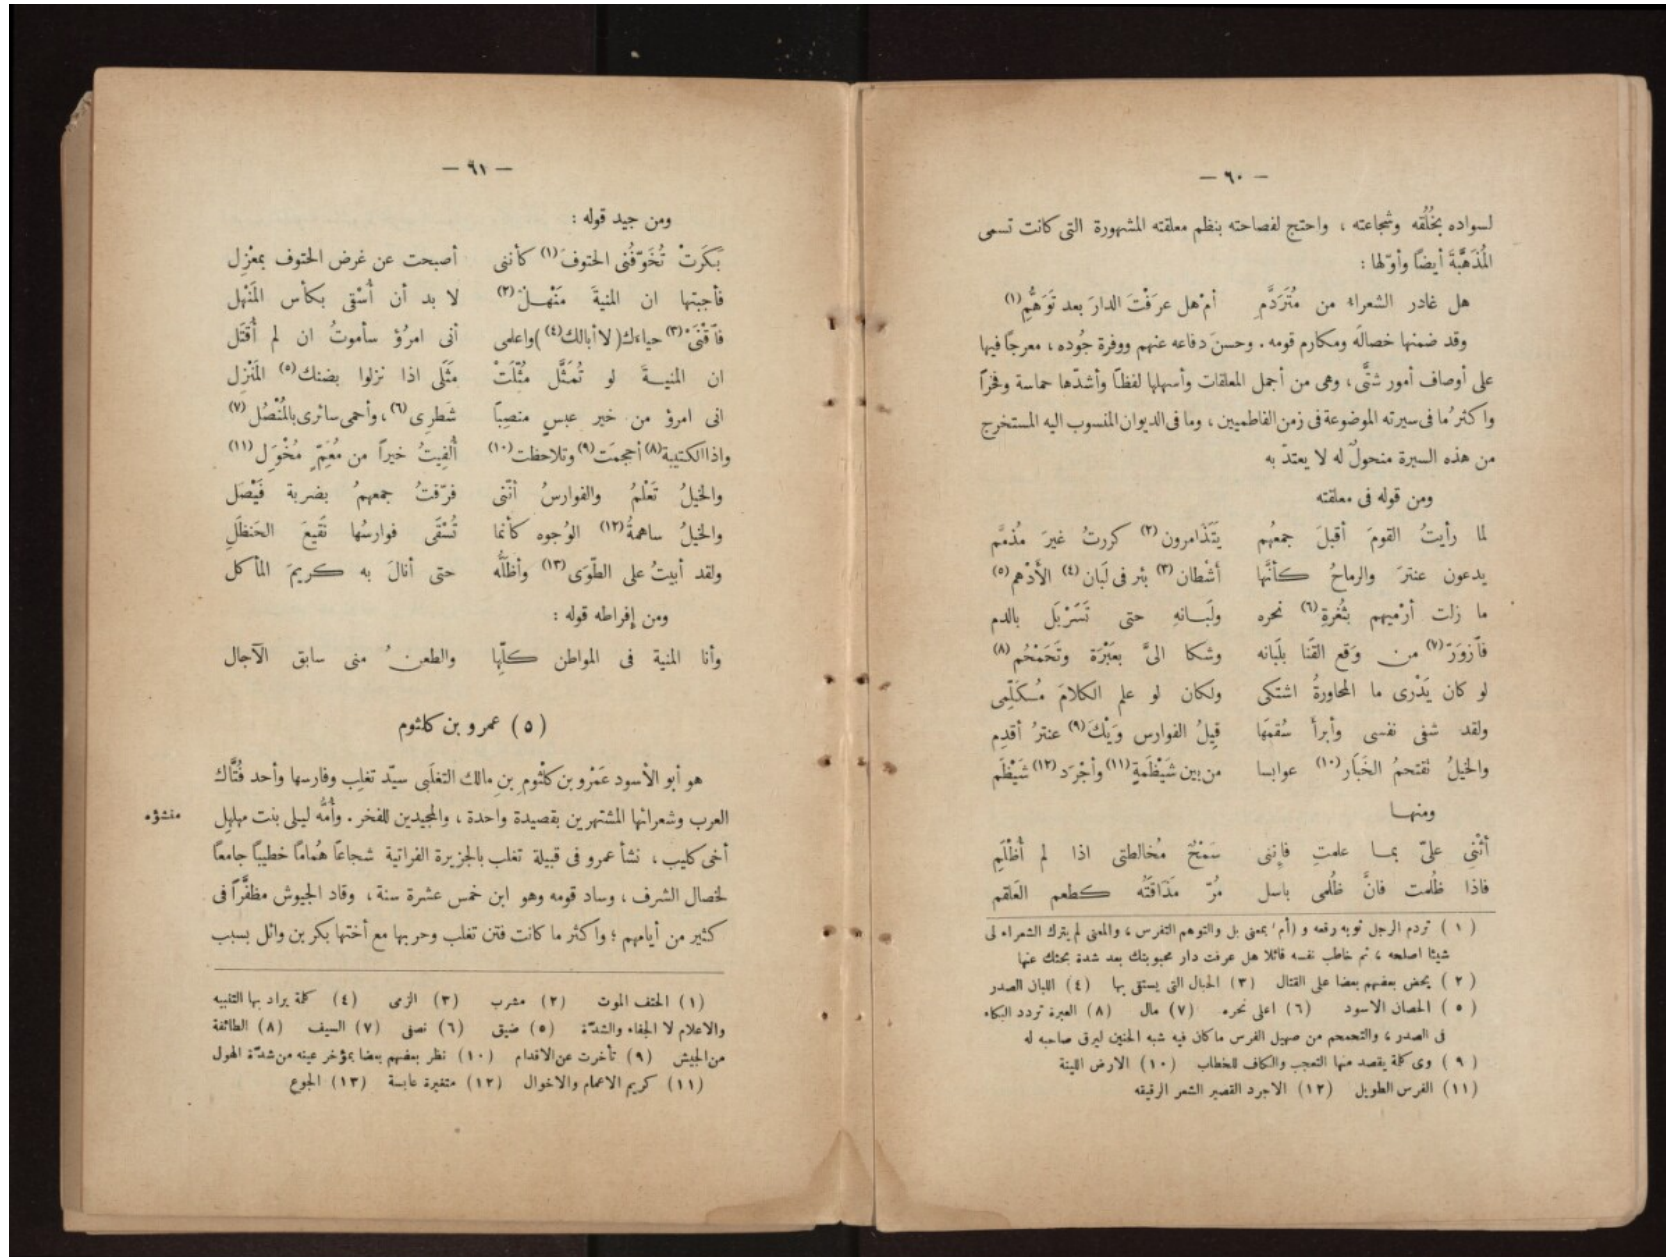 — ٦٠ —
لسواده بخُلُقه وشجاعته ، واحتج لفصاحته بنظم معلقته المشهورة التى كانت تسمى
المُذَهَّبةَ أيضًا وأوّلها :
هل غادر الشعراءُ من مُتَرَدَّمِ أمْ هل عرَفْتَ الدارَ بعد تَوَهُّمِ (١)
وقد ضمنها خصالَه ومكارم قومه . وحسنَ دفاعه عنهم ووفرة جُوده ، معرجًا فيها
على أوصاف أمور شتَّى ، وهى من أجمل المعلقات وأسهلها لفظًا وأشدّها حماسة وفخرًا
واكثرُ ما فى سيرته الموضوعة فى زمن الفاطميين ، وما فى الديوان المنسوب اليه المستخرج
من هذه السيرة منحولٌ له لا يعتدّ به
ومن قوله فى معلقته
لما رأيتُ القومَ أقبلَ جمعهُم يتَذَامرون (٢) كررتُ غيرَ مُذمَّم
يدعون عنترَ والرماحُ كأنَّها أشْطان (٣) بئر فى لَبان (٤) الأَدْهم (٥)
ما زلت أرْميهم بثُغرةِ (٦) نحره ولَبـانهِ حتى تَسَرْبَل بالدم
فآزْوَرّ (٧) من وَقع القَنا بلَبانه وشكا الىَّ بعَبْرَة وتَحَمْحُم (٨)
لو كان يَدْرى ما المحاورةُ اشتكى ولكان لو علم الكلامَ مُكَلّمِى
ولقد شفى نفسى وأبرأ سُقمَها قِيلُ الفوارس وَيْكَ (٩) عنترُ أقدِم
والخيلُ تقتحمُ الخَبَار (١٠) عوابسا من بين شَيْظَمةٍ (١١) وأجْرَد (١٢) شَيْظَم
ومنهـا
أثْنِى علىّ بمـا علمتِ فإننى سَمْحٌ مُخالطتى اذا لم أُظْلَمِ
فاذا ظُلمت فانَّ ظُلمى باسل مُرّ مَذَاقَتُه كطعم العَلقم
( ١ ) تردم الرجل ثوبه رقعه و (أم) بمعنى بل والتوهم التفرس ، والمعنى لم يترك الشعراء لى
شيئا اصلحه ، ثم خاطب نفسه قائلا هل عرفت دار محبوبتك بعد شدة بحثك عنها
( ٢ ) يحض بعضهم بعضا على القتال ( ٣ ) الحبال التى يستقى بها ( ٤ ) اللبان الصدر
( ٥ ) الحصان الاسود ( ٦ ) اعلى نحره ( ٧ ) مال ( ٨ ) العبرة تردد البكاء
فى الصدر ، والتحمحم من صهيل الفرس ما كان فيه شبه الحنين ليرق صاحبه له
( ٩ ) وى كلمة يقصد منها التعجب والكاف للخطاب ( ١٠ ) الارض اللينة
( ١١ ) الفرس الطويل ( ١٢ ) الاجرد القصير الشعر الرقيقه
— ٦١ —
ومن جيد قوله :
بَكَرتْ تُخَوّفُنى الحتوفَ (١) كأننى أصبحت عن غرض الحتوف بمعْزِل
فأجبتها ان المنيةَ مَنْهـلٌ (٢) لا بد أن أُسْقى بكأس المَنْهل
فآقْنَىْ (٣) حياءك (لا أبالك (٤) ) واعلمى أنى امرُؤ سأموتُ ان لم أُقتَل
ان المنيـةَ لو تُمَثَّل مُثّلَتْ مثَلى اذا نزلوا بضنك (٥) المَنْزِل
انى امرؤ من خير عبسٍ منصِبًا شَطرِى (٦) ، وأحمى سائرى بالمُنْصُل (٧)
واذا الكتيبة (٨) أحجمَت (٩) وتلاحظت (١٠) أُلفِيتُ خيرًا من مُعَمٍّ مُخْوَلِ (١١)
والخيلُ تَعْلمُ والفوارسُ أنّنى فرّقتُ جمعهمُ بضربة فَيْصَل
والخيلُ ساهمةُ (١٢) الوُجوه كأنما تُسْقَى فوارسُها نَقيعَ الحَنظَلِ
ولقد أبيتُ على الطّوَى (١٣) وأظَلُّه حتى أنالَ به كريمَ المأكل
ومن إفراطه قوله :
وأنا المنية فى المواطن كلّها والطعنُ منى سابق الآجال
( ٥ ) عمرو بن كلثوم
هو أبو الأسود عَمْرو بن كلْثوم بنِ مالك التغلَبى سيّد تغلِب وفارسها وأحد فُتَّاك
العرب وشعرائها المشتهرين بقصيدة واحدة ، والمجيدين للفخر . وأُمُّه ليلى بنت مهلهِل
منشؤه
أخى كليب ، نشأ عمرو فى قبيلة تغلب بالجزيرة الفراتية شجاعًا هُمامًا خطيبًا جامعًا
لخصال الشرف ، وساد قومه وهو ابن خمس عشرة سنة ، وقاد الجيوش مظفَّرًا فى
كثير من أيامهم ؛ واكثر ما كانت فتن تغلب وحربها مع أختها بكر بن وائل بسبب
(١) الحتف الموت (٢) مشرب (٣) الزمى (٤) كلمة يراد بها التنبيه
والاعلام لا الجفاء والشدّة (٥) ضيق (٦) نصفى (٧) السيف (٨) الطائفة
من الجيش (٩) تأخرت عن الاقدام (١٠) نظر بعضهم بعضا بمؤخر عينه من شدّة الهول
(١١) كريم الاعمام والاخوال (١٢) متغيرة عابسة (١٣) الجوع